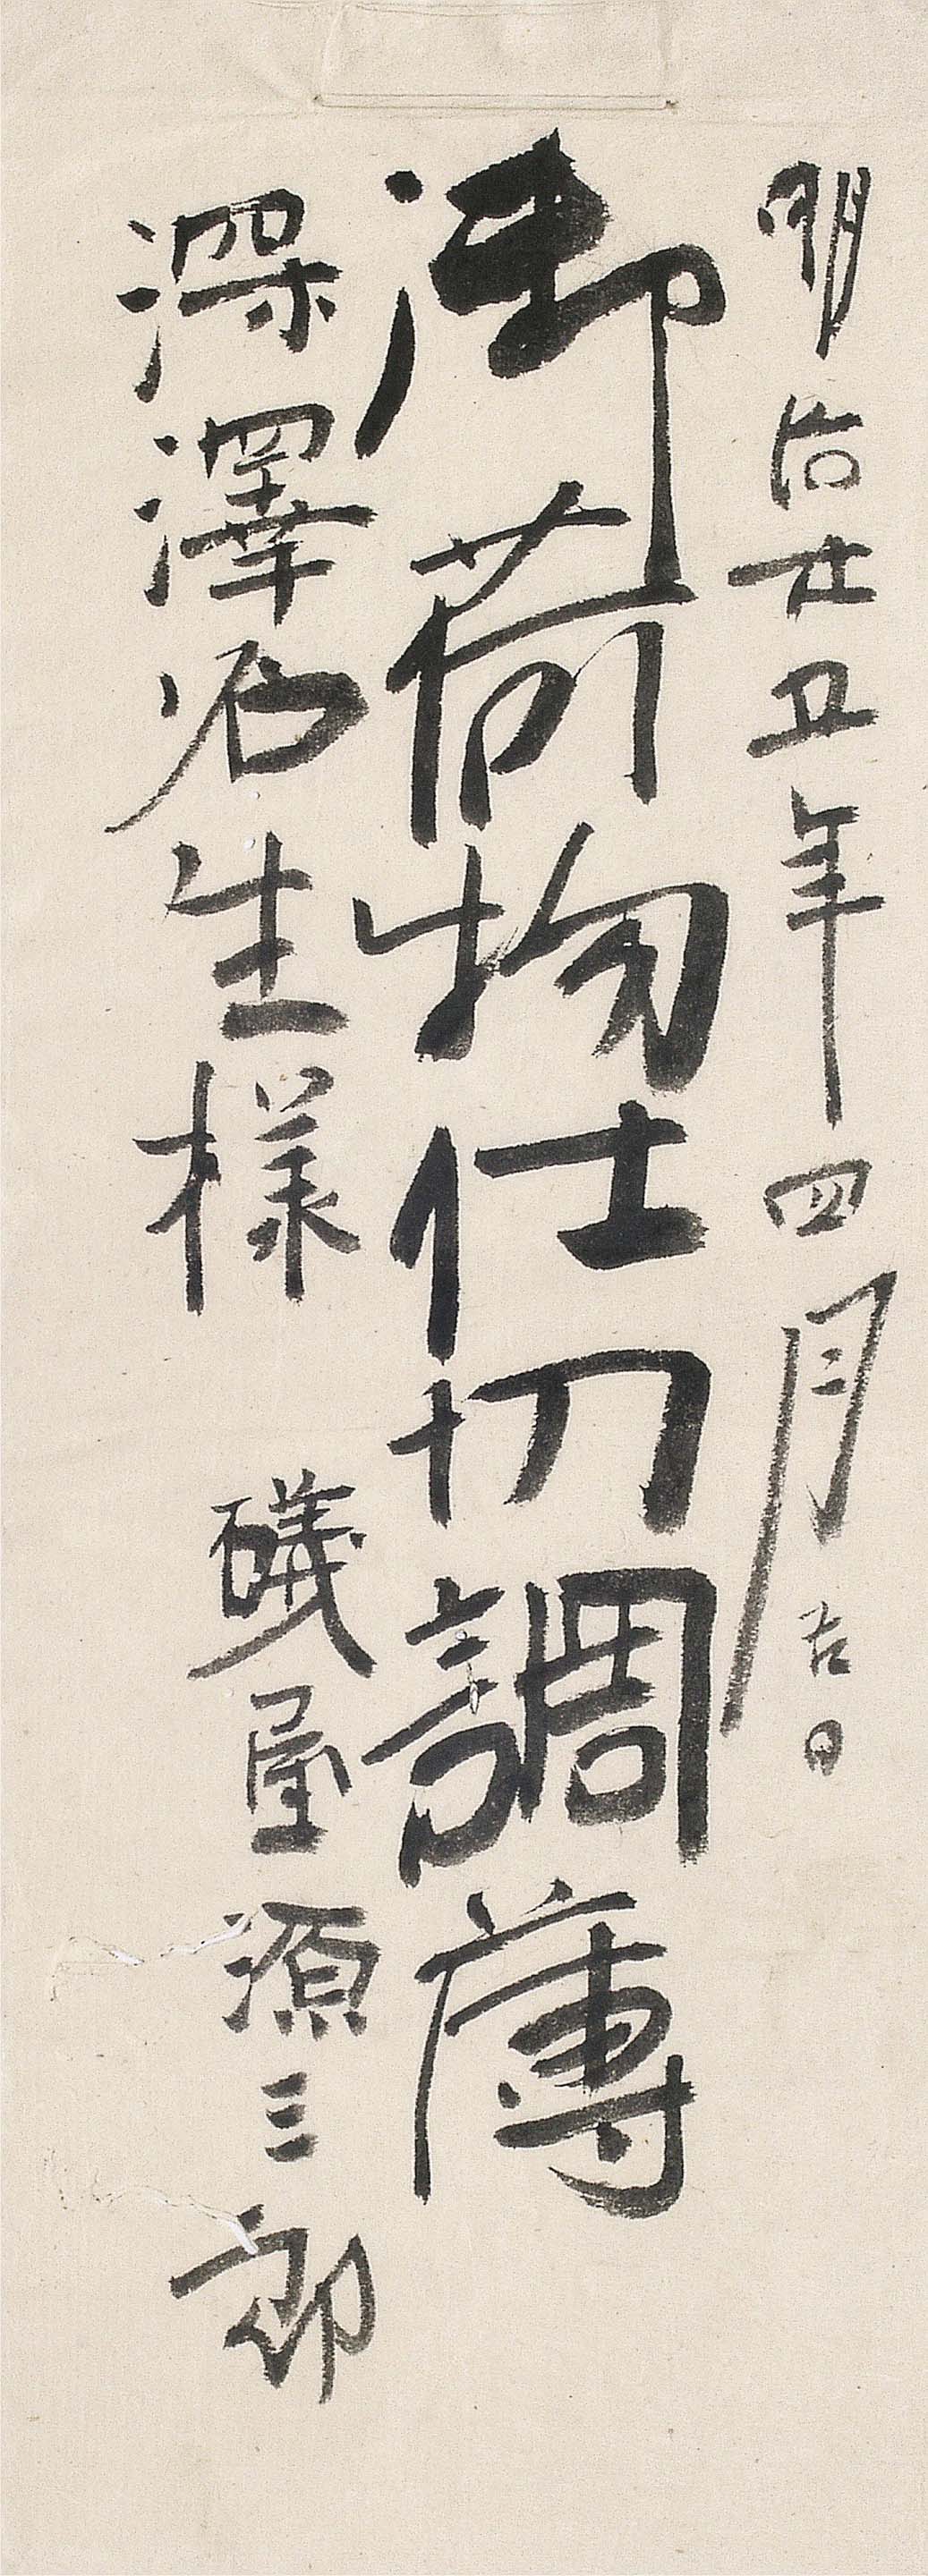 明治廿五年四月吉日
御荷物仕切調薄
深澤名生様
礒屋源三郎